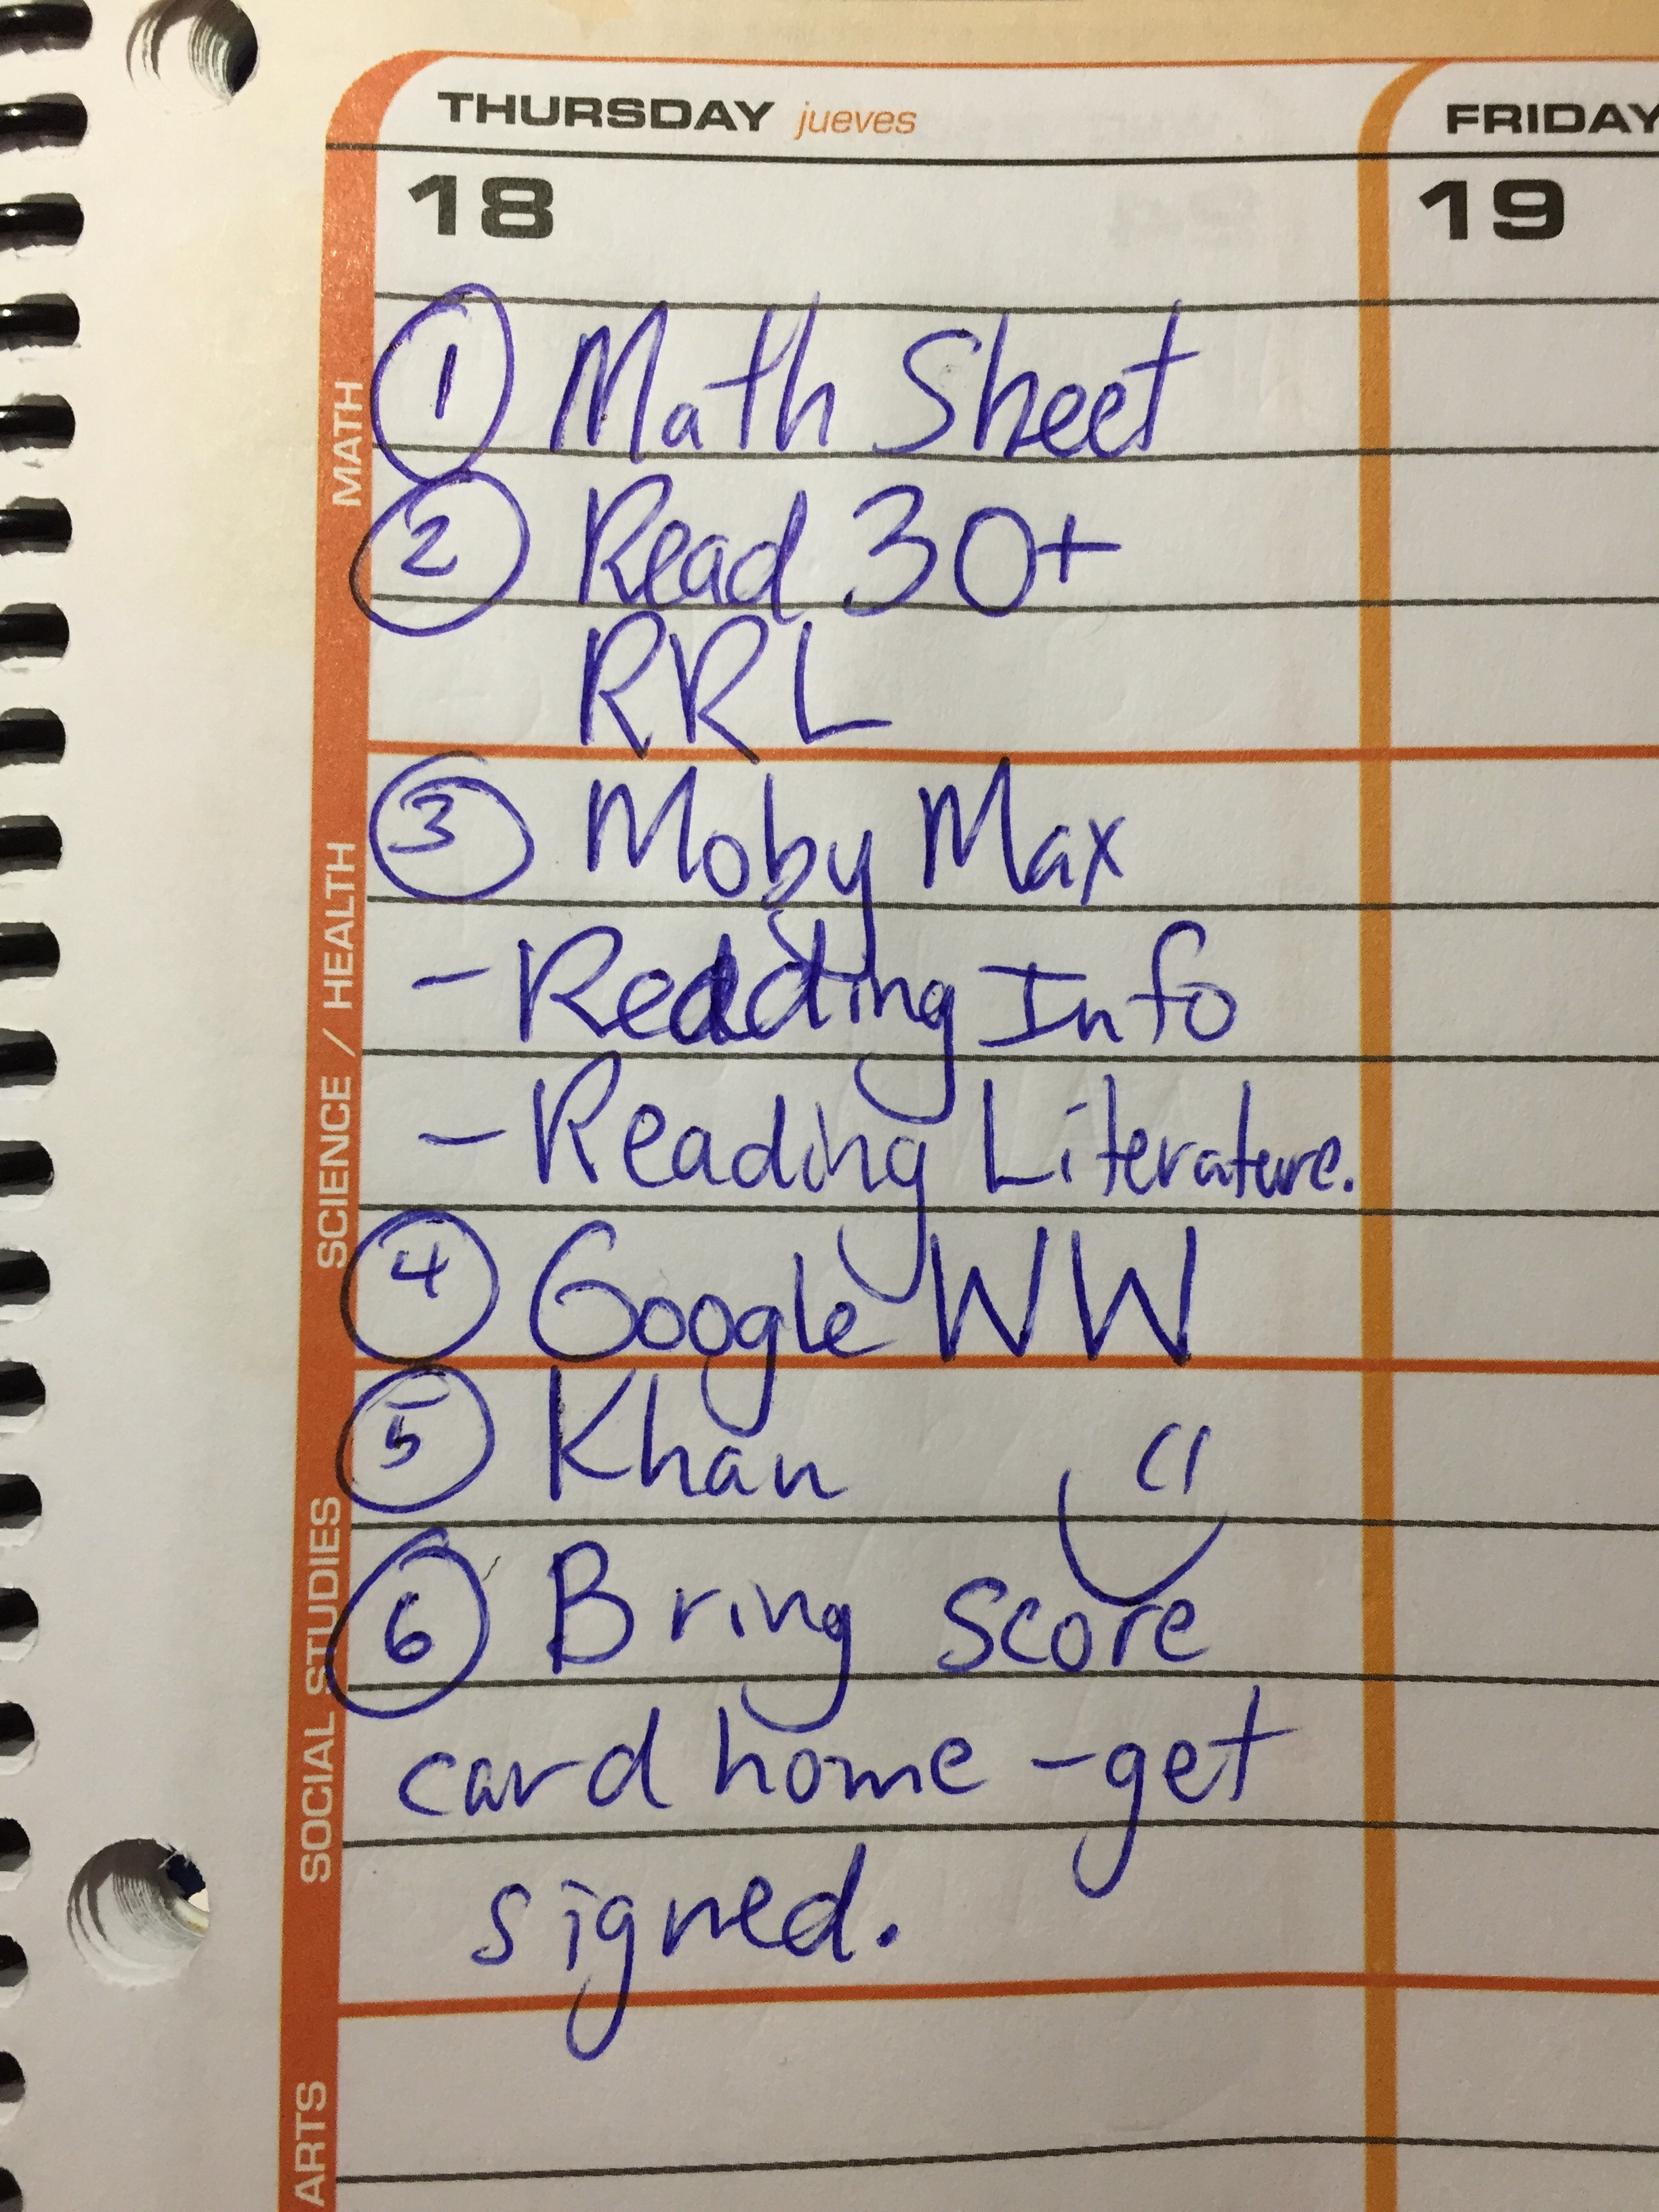 THURSDAY jueves
FRIDAY
18
19
MATH
① Math Sheet
② Read 30+
RRL
SCIENCE / HEALTH
③ Moby Max
- Reading Info
- Reading Literature.
④ Google WW
SOCIAL STUDIES
⑤ Khan
⑥ Bring score
card home - get
signed.
ARTS